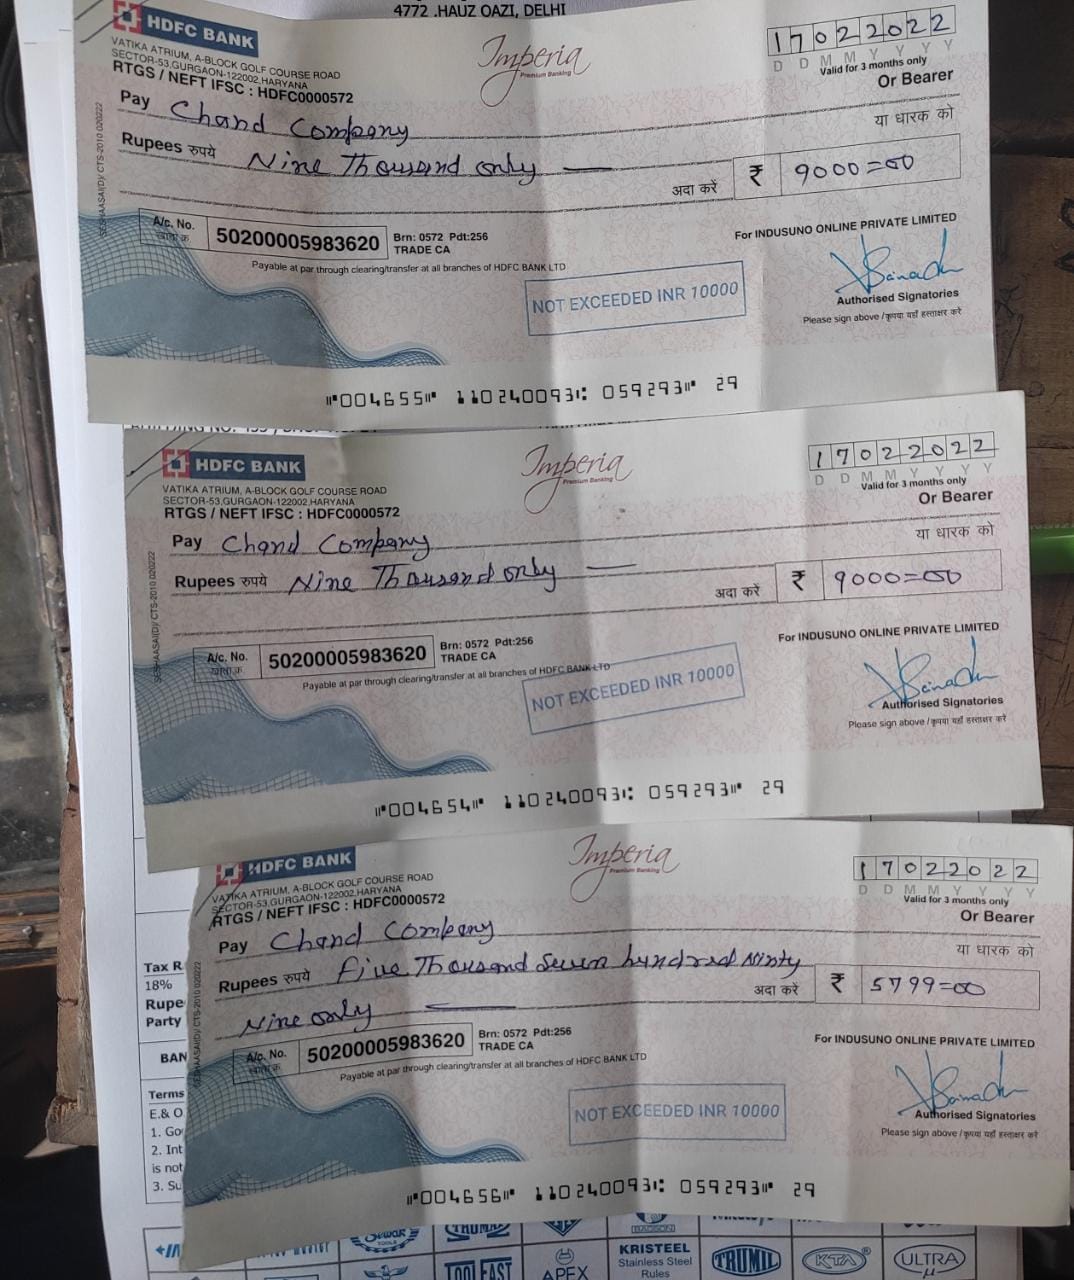 4772 .HAUZ QAZI, DELHI
HDFC BANK
VATIKA ATRIUM, A-BLOCK GOLF COURSE ROAD
SECTOR-53,GURGAON-122002,HARYANA
RTGS / NEFT IFSC : HDFC0000572
Imperia
Premium Banking
17022022
D D M M Y Y Y Y
Valid for 3 months only
Or Bearer
Pay Chand Company
या धारक को
Rupees रुपये Nine Thousand only
अदा करें ₹ 9000=00
A/c. No. 50200005983620 Brn: 0572 Pdt:256
खाता क्र. TRADE CA
Payable at par through clearing/transfer at all branches of HDFC BANK LTD
For INDUSUNO ONLINE PRIVATE LIMITED
NOT EXCEEDED INR 10000
Authorised Signatories
Please sign above /कृपया यहाँ हस्ताक्षर करे
SESHAASAI(D)/ CTS-2010 020222
⑈004655⑈ 110240093⑆ 059293⑈ 29
HDFC BANK
VATIKA ATRIUM, A-BLOCK GOLF COURSE ROAD
SECTOR-53,GURGAON-122002,HARYANA
RTGS / NEFT IFSC : HDFC0000572
Imperia
Premium Banking
17022022
D D M M Y Y Y Y
Valid for 3 months only
Or Bearer
Pay Chand Company
या धारक को
Rupees रुपये Nine Thousand only
अदा करें ₹ 9000=00
A/c. No. 50200005983620 Brn: 0572 Pdt:256
खाता क्र. TRADE CA
Payable at par through clearing/transfer at all branches of HDFC BANK LTD
For INDUSUNO ONLINE PRIVATE LIMITED
NOT EXCEEDED INR 10000
Authorised Signatories
Please sign above /कृपया यहाँ हस्ताक्षर करे
SESHAASAI(D)/ CTS-2010 020222
⑈004654⑈ 110240093⑆ 059293⑈ 29
HDFC BANK
VATIKA ATRIUM, A-BLOCK GOLF COURSE ROAD
SECTOR-53,GURGAON-122002,HARYANA
RTGS / NEFT IFSC : HDFC0000572
Imperia
Premium Banking
17022022
D D M M Y Y Y Y
Valid for 3 months only
Or Bearer
Pay Chand Company
या धारक को
Rupees रुपये Five Thousand Seven hundred Ninty
अदा करें ₹ 5799=00
Nine only
A/c. No. 50200005983620 Brn: 0572 Pdt:256
खाता क्र. TRADE CA
Payable at par through clearing/transfer at all branches of HDFC BANK LTD
For INDUSUNO ONLINE PRIVATE LIMITED
NOT EXCEEDED INR 10000
Authorised Signatories
Please sign above /कृपया यहाँ हस्ताक्षर करे
SESHAASAI(D)/ CTS-2010 020222
⑈004656⑈ 110240093⑆ 059293⑈ 29
Tax R
18%
Rupe
Party
BAN
Terms
E.& O
1. Go
2. Int
is not
3. Su
APEX
KRISTEEL
Stainless Steel
Rules
TRUMIL
KTA
ULTRA